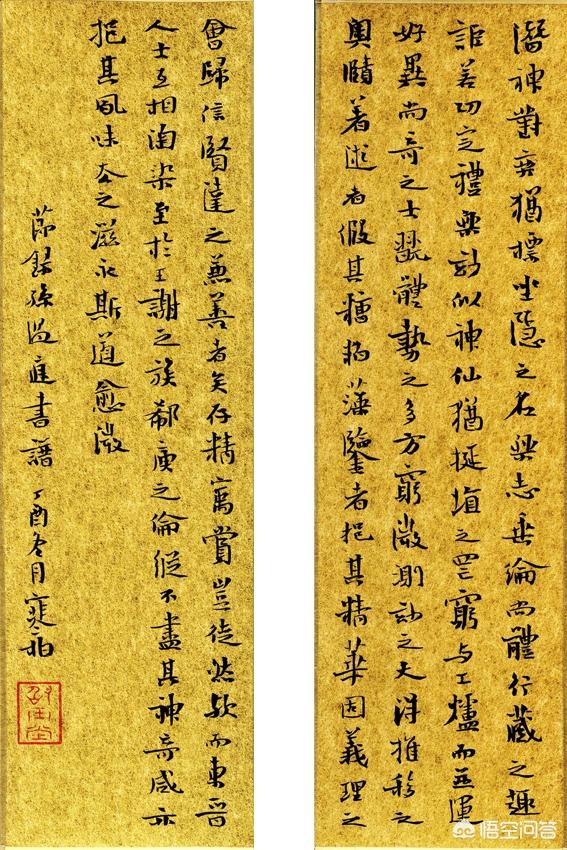 潛神對弈猶標坐隱之名樂志垂綸尚體行藏之趣
詎若功定禮樂妙似神仙猶挻埴之罔窮与工爐而並運
好異尚奇之士翫體勢之多方窮微測妙之夫得推移之
奧賾著述者假其糟粕藻鑒者挹其精華固義理之
會歸信賢達之兼善者矣存精寓賞豈徒然歟而東晉
人士互相陶染至於王謝之族郗庾之倫縱不盡其神奇咸亦
挹其風味去之滋永斯道愈微
節錄孫過庭書譜丁酉冬月
悟空问答